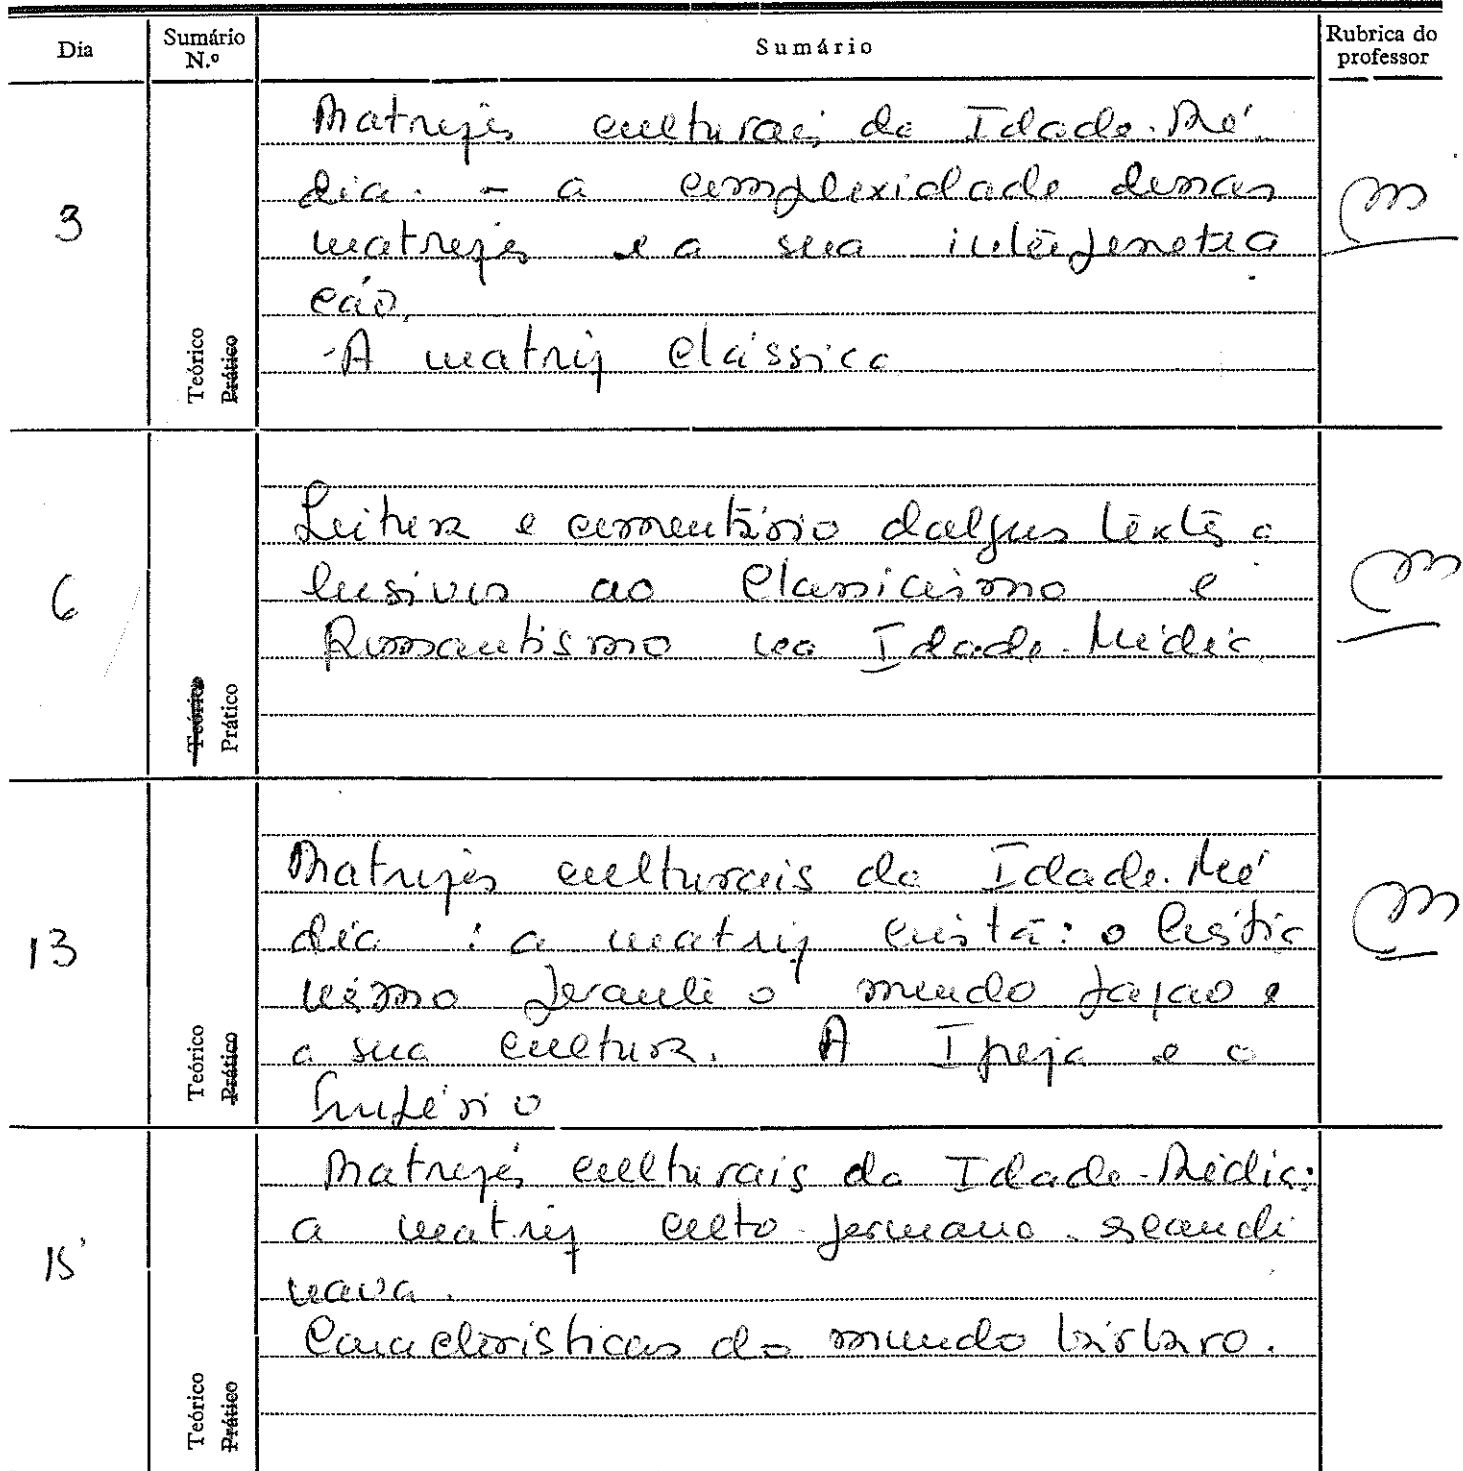 Dia Sumário N.º Sumário Rubrica do professor
3
Matrizes culturais da Idade-Mé
dia. - a complexidade dessas
matrizes e a sua interpenetra
ção.
-A matriz clássica
Teórico
Prático
6
Leitura e comentário dalguns textos a
lusivos ao Classicismo e
Romantismo na Idade-Média.
Teórico
Prático
13
Matrizes culturais da Idade-Mé
dia : a matriz cristã: o Cristia
nismo perante o mundo pagão e
a sua cultura. A Igreja e o
Império
Teórico
Prático
15
Matrizes culturais da Idade-Média:
a matriz celto-germano-scandi
nava.
Características do mundo bárbaro.
Teórico
Prático